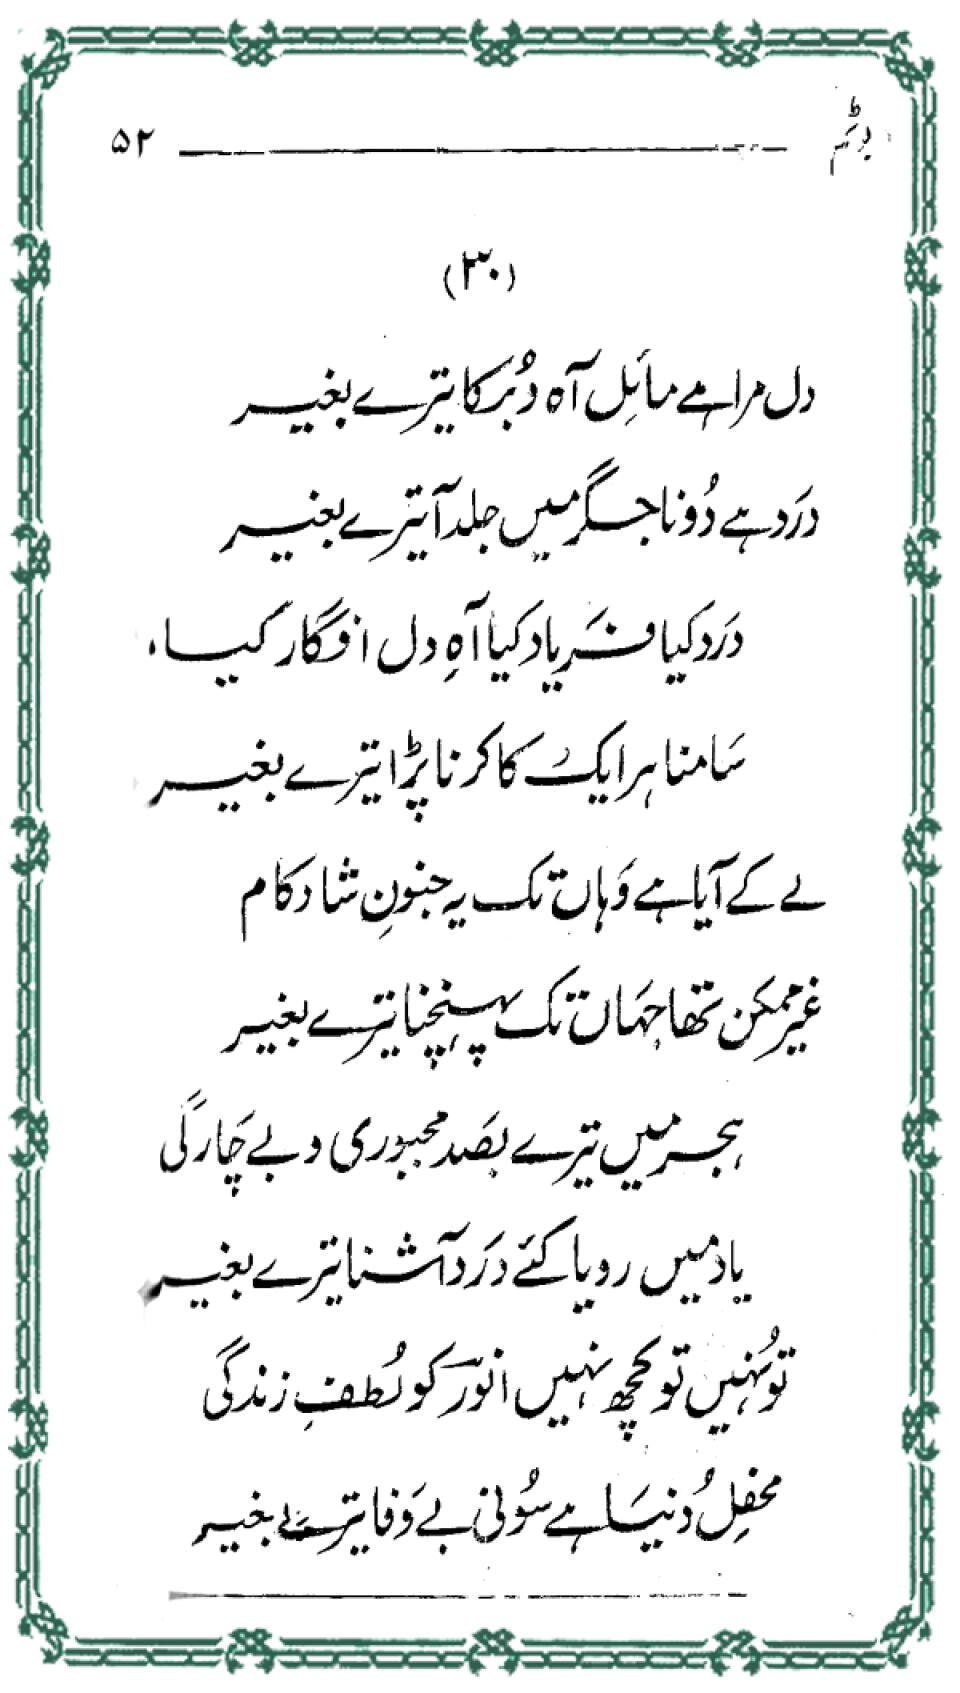 ۵۲
(۳۰)
دل مرا ہے مائلِ آہ و بُکا تیرے بغیر
دَرد ہے دُونا جگر میں جلد آ تیرے بغیر
دَرد کیا فریاد کیا آہِ دل افگار کیا،
سَامنا ہر ایک کا کرنا پڑا تیرے بغیر
لے کے آیا ہے وَہاں تک یہ جنونِ شاد کام
غیر ممکن تھا جہَاں تک پہنچنا تیرے بغیر
ہجر میں تیرے بصَد مجبوری و بے چَارگی
یاد میں رویا کئے دَرد آشنا تیرے بغیر
تو نہیں تو کچھ نہیں انورؔ کو لُطفِ زندگی
محفلِ دُنیَا ہے سُونی بے وَفا تیرے بغیر